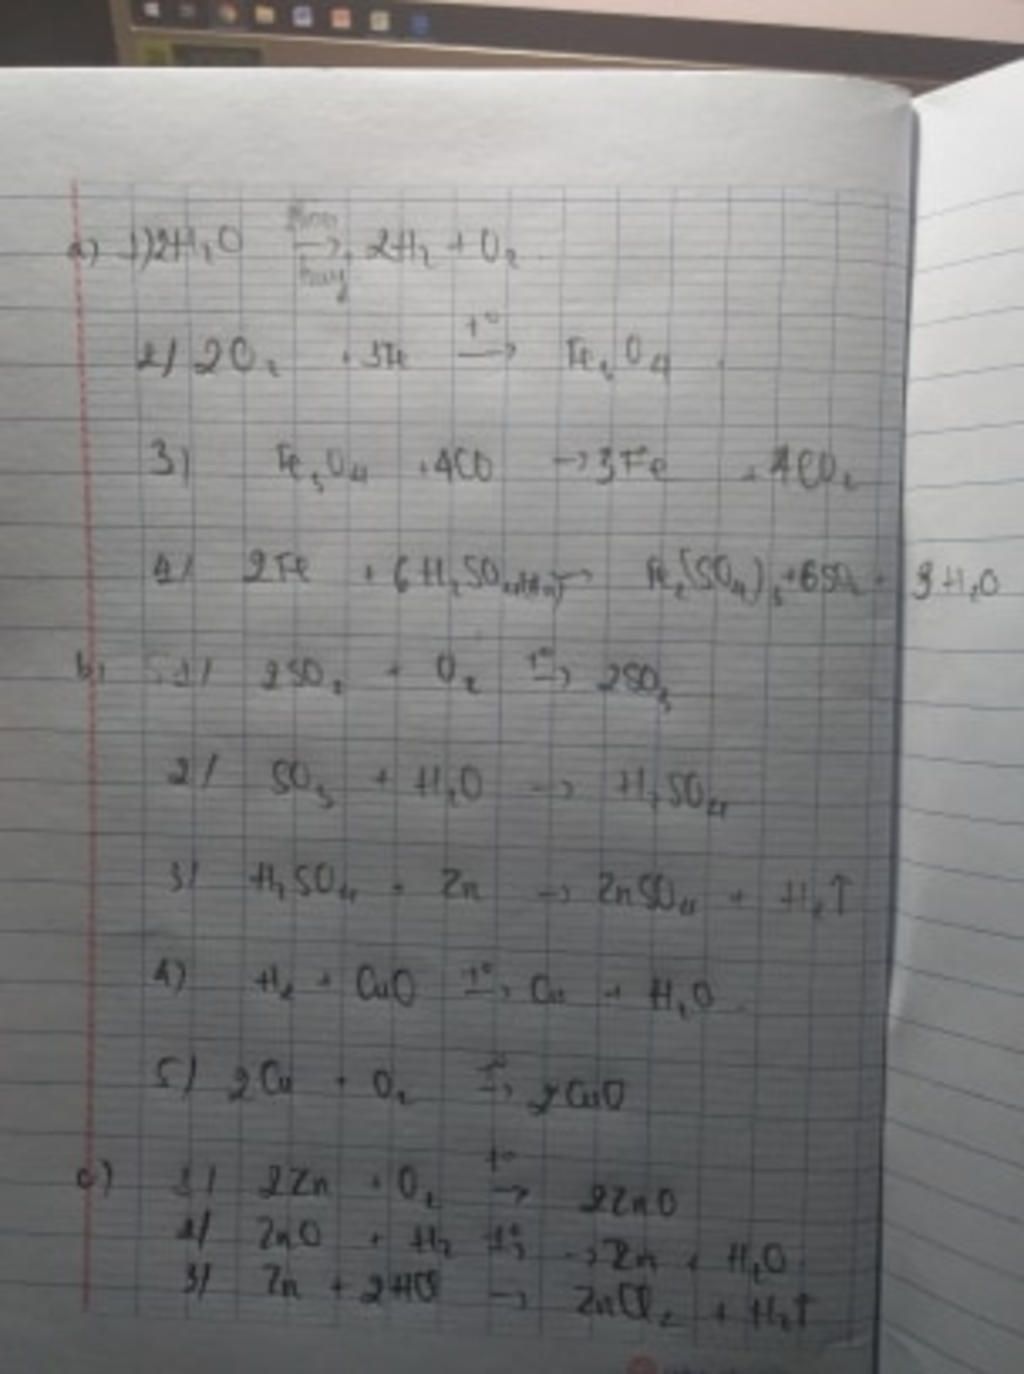 a) 1) 2H₂O → 2H₂ + O₂
2/ 2O₂ + 3Fe t° → Fe₃O₄
3) Fe₃O₄ + 4CO → 3Fe + 4CO₂
4/ 2Fe + 6H₂SO₄ → Fe₂(SO₄)₃ + 6SO₂ + 3H₂O
b) 1/ 2SO₂ + O₂ t° → 2SO₃
2/ SO₃ + H₂O → H₂SO₄
3/ H₂SO₄ + Zn → ZnSO₄ + H₂↑
4) H₂ + CuO t° → Cu + H₂O
5) 2Cu + O₂ t° → 2CuO
c) 1/ 2Zn + O₂ t° → 2ZnO
2/ ZnO + H₂ t° → → Zn + H₂O
3/ Zn + 2HCl → ZnCl₂ + H₂↑